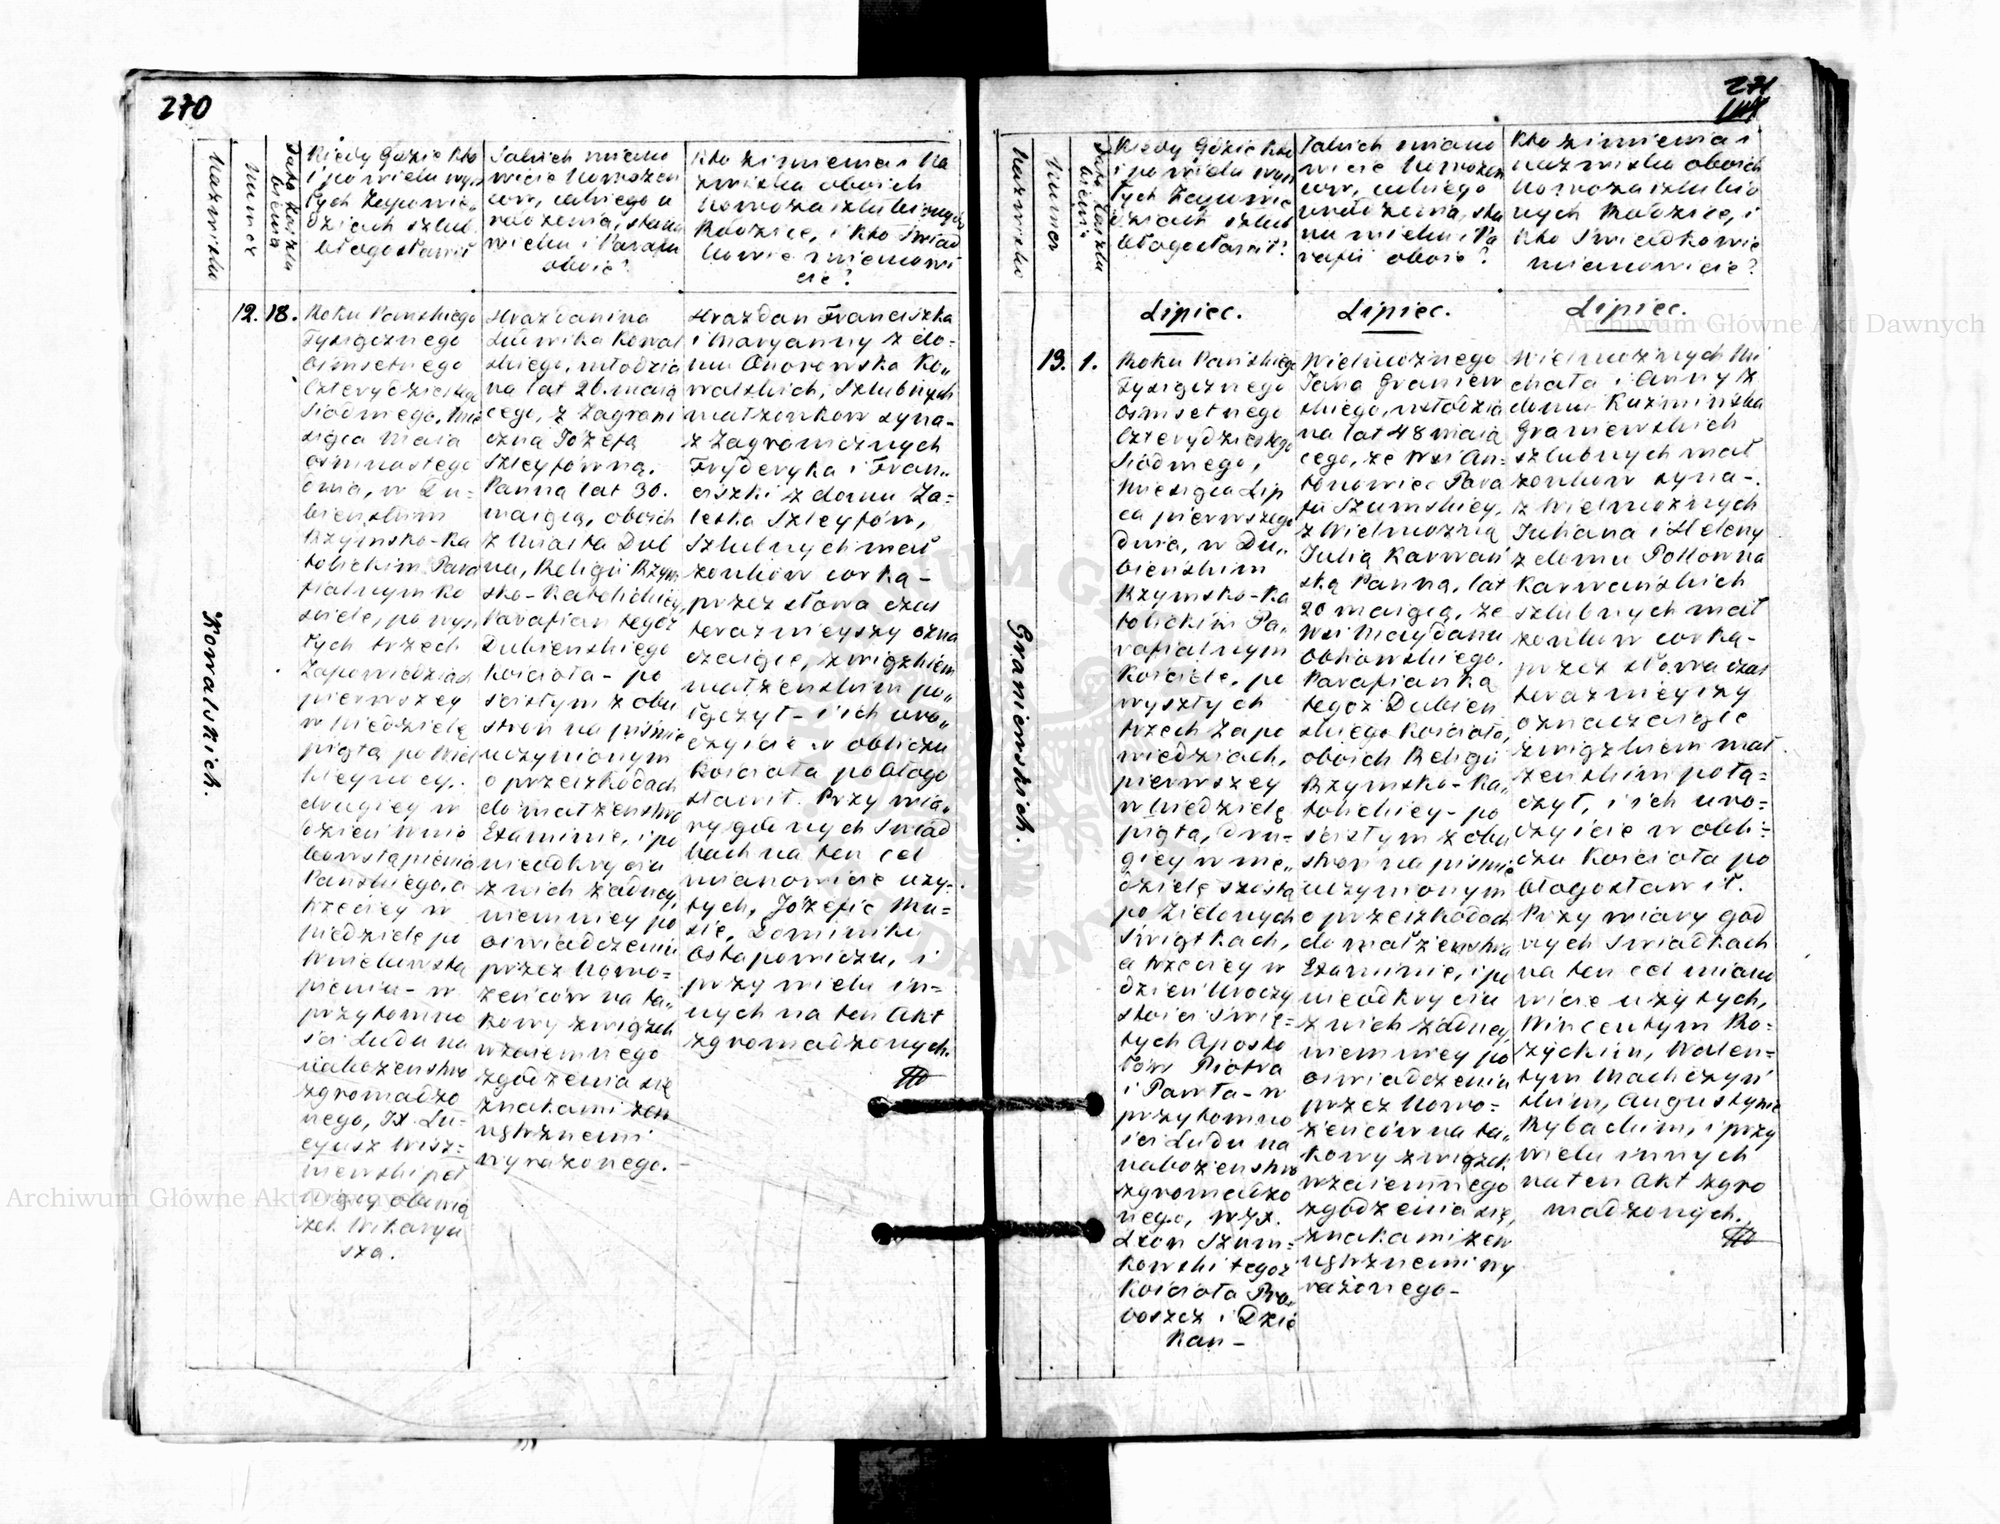 270
Nazwiska
Numer
Data Kaszla
biema
Kiedy Gdzie Kto
i po wielu wysz
łych Zapowie-
dziach szlub
błogosławił
Jakich miano
wicie Nowożeń
ców, jakiego u
rodzenia, stanu
wieku i Parafii
oboie?
Kto z imienia i Na
zwiska oboich
Nowozaszlubionych
Rodzice, i Kto Świad
kowie mianowi
cie?
Kowalskich.
12. 18.
Roku Pańskiego
Tysiącznego
Osmsetnego
Czterydziestego
Siódmego, Mie
siąca Maia
osmnastego
dnia, w Du-
bienskim
Rzymsko-Ka
tolickim Para
fialnym Ko
ściele, po wysz
łych trzech
Zapowiedziach
pierwszey
w Niedzielę
piątą po Wiel
kieynocy,
drugiey w
dzień Wnie
bowstąpienia
Pańskiego, a
trzeciey w
Niedzielę po
Wniebowstą
pieniu - w
przytomno
ści Ludu na
nabożeństwo
zgromadzo
nego, JX. Lu-
cyusz Wisz-
niewski peł
niący obowią
zek Wikaryu
sza.
Hrażdanina
Ludwika Kowal
skiego, młodzia
na lat 26. maią
cego, z Zagrani
czną Józefą
Szleyfówną.
Panną lat 30.
maiącą, oboich
z Miasta Dub
na, Religii Rzym
sko-Katolickiey,
Parafian tegoż
Dubienskiego
Kościoła - po
ścisłym z obu
stron na piśmie
uczynionym
o przeszkodach
do małżeństwa
Examinie, i po
nieodkryciu
z nich żadney,
niemniey po
oświadczeniu
przez Nowo-
żeńców na ta-
kowy związek
wzaiemnego
zgodzenia się
znakami zew
nętrznemi
wyrażonego. -
Hrażdan Franciszka
i Maryanny z do-
mu Onorowska Ko-
walskich, Szlubnych
małżonkow syna-
z Zagranicznych
Fryderyka i Fran-
ciszki z domu Za-
leska Szleyfów,
Szlubnych mał
żonków corką -
przez słowa czas
teraznieyszy ozna
czaiące, związkiem
małżenskim po-
łączył - i ich uro-
czyście w obliczu
Kościoła pobłogo
sławił. Przy wia-
rygodnych Świad
kach na ten cel
mianowicie uży-
tych, Józefie Mu-
sie, Dominiku
Ostapowiczu, i
przy wielu in-
nych na ten Akt
zgromadzonych.
271
Nazwiska
Numer
Data Kaszla
biema
Kiedy Gdzie Kto
i po wielu wysz
łych Zapowie
dziach szlub
błogosławił?
Jakich miano
wicie Nowożeń
cow, jakiego
urodzenia, sta
nu wieku i Pa
rafii oboie?
Kto z imienia i
nazwiska oboich
Nowozaszlubio
nych Rodzice, i
Kto Świadkowie
mianowicie?
Graniewskich.
Lipiec.
Lipiec.
Lipiec.
13. 1.
Roku Pańskiego
Tysiącznego
Osmsetnego
Czterydziestego
Siódmego,
Miesiąca Lip
ca pierwszego
dnia, w Du-
bienskim
Rzymsko-Ka
tolickim Pa-
rafialnym
Kościele, po
wyszłych
trzech Zapo
wiedziach,
pierwszey
w Niedzielę
piątą, dru-
giey w Nie-
dzielę szóstą
po Zielonych
Świątkach,
a trzeciey w
dzień Uroczy
stości Świę-
tych Aposto
łów Piotra
i Pawła - w
przytomno
ści Ludu na
nabożenstwo
zgromadzo
nego, WJX.
Leon Szum-
kowski tegoż
Kościoła Pro-
boszcz i Dzie
kan -
Wielmożnego
Jana Graniew
skiego, młodzia
na lat 48 maią
cego, ze Wsi An-
tonowiec Para
fii Szumskiey,
z Wielmożną
Julią Karwań
ską Panną, lat
20 maiącą, ze
Wsi Maydanu
Obhowskiego.
Parafianką
tegoż Dubien
skiego Kościoła,
oboich Religii
Rzymsko-Ka-
tolickiey - po
ścisłym z obu
stron na piśmie
uczynionym
o przeszkodach
do małżenstwa
Examinie, i po
nieodkryciu
z nich żadney,
niemniey po
oświadczeniu
przez Nowo-
żeńców na ta-
kowy związek
wzaiemnego
zgodzenia się,
znakami zew
nętrznemi wy
rażonego -
Wielmożnych Mi
chała i Anny z
domu Kuzminska
Graniewskich
szlubnych mał
żonkow syna -
z Wielmożnych
Juliana i Heleny
z domu Połłowna
Karwańskich
szlubnych mał
żonkow corką -
przez słowa czas
teraznieyszy
oznaczaiące
związkiem mał
żenskim połą-
czył, i ich uro-
czyście w obli-
czu Kościoła po
błogosławił.
Przy wiary god
nych świadkach
na ten cel miano
wicie użytych,
Wincentym Ro-
życkim, Walen-
tym Machczyń
skim, Augustynie
Rybackim, i przy
wielu innych
na ten Akt zgro
madzonych.
Archiwum Główne Akt Dawnych
Archiwum Główne Akt Dawnych